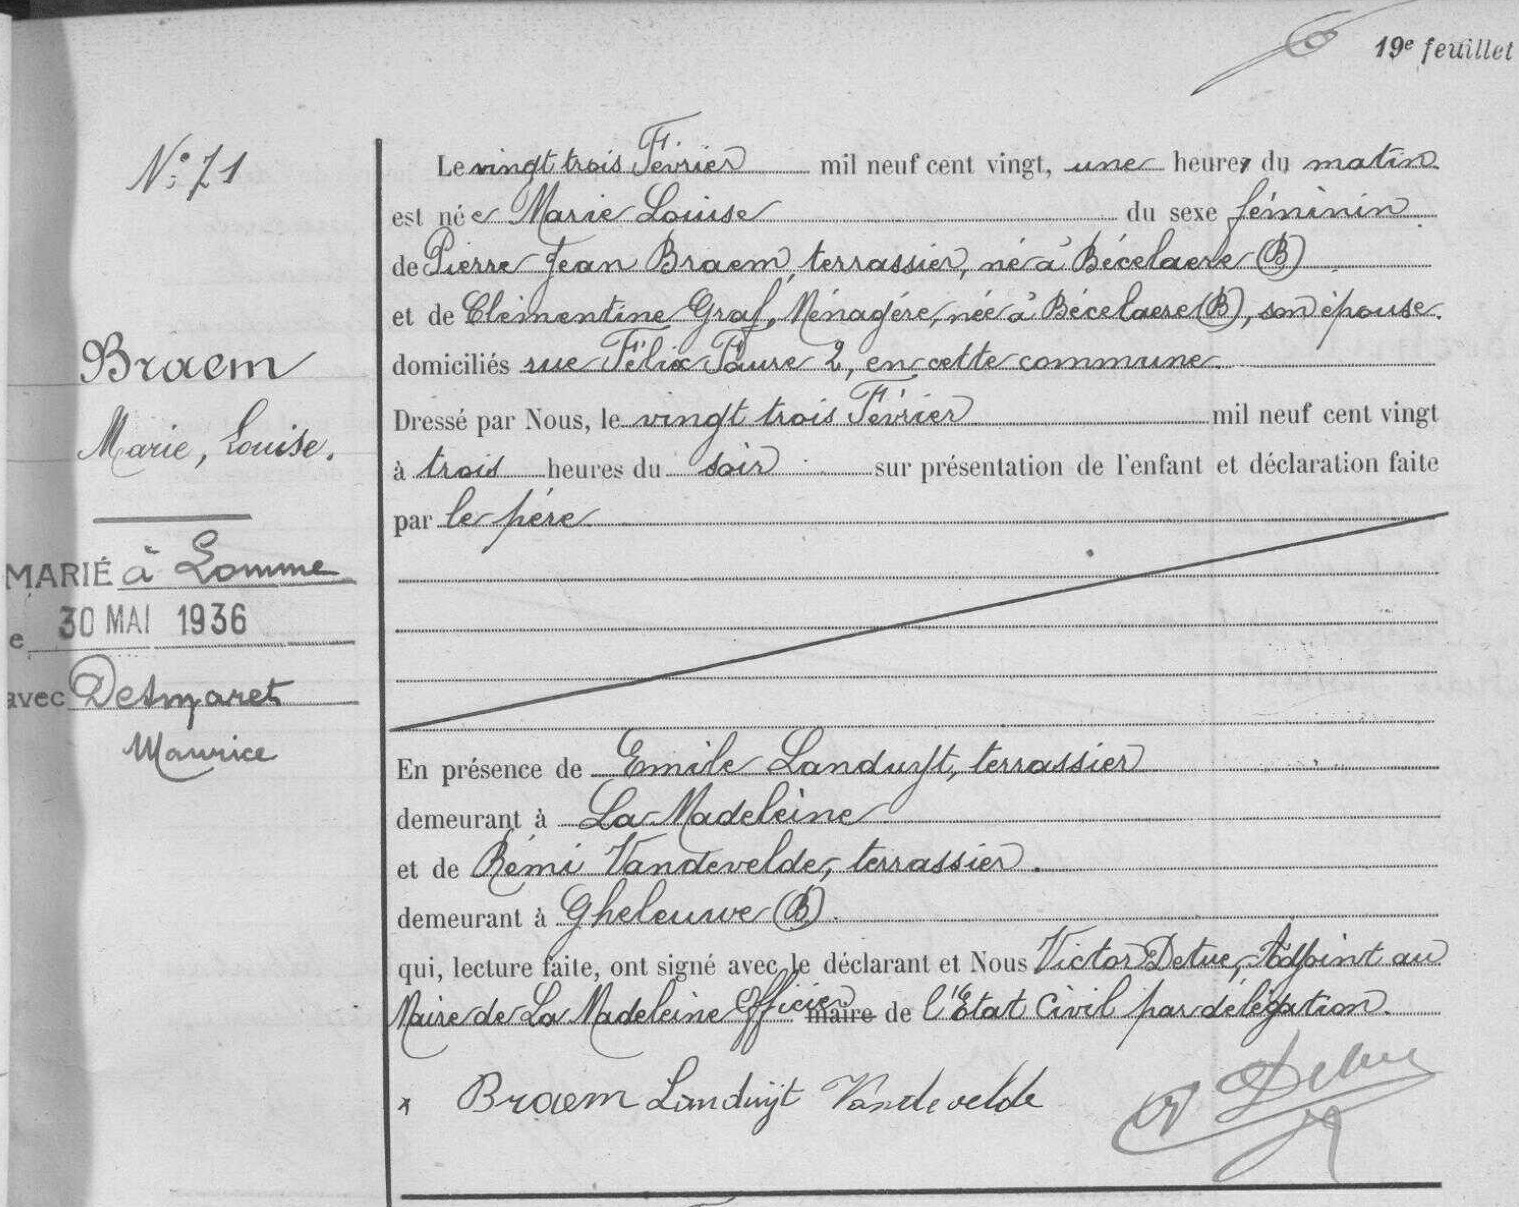 19e feuillet
No: 71
Braem
Marie, Louise.
MARIÉ à Lomme
e 30 MAI 1936
avec Desmaret
Maurice
Le vingt trois Février mil neuf cent vingt, une heure, du matin
est née Marie Louise du sexe féminin
de Pierre Jean Braem, terrassier, né à Bécelaere (B)
et de Clémentine Graf, Ménagére, née à Bécelaere (B), son épouse.
domiciliés rue Félix Faure 2, en cette commune.
Dressé par Nous, le vingt trois Février mil neuf cent vingt
à trois heures du soir sur présentation de l'enfant et déclaration faite
par le pére
En présence de Emile Landuyt, terrassier
demeurant à La Madeleine
et de Rémi Vandevelde, terrassier.
demeurant à Gheleuwe (B).
qui, lecture faite, ont signé avec le déclarant et Nous Victor Detue, Adjoint au
Maire de La Madeleine Officier maire de l'Etat Civil par délégation.
x Braem Landuyt Vandevelde V Detue